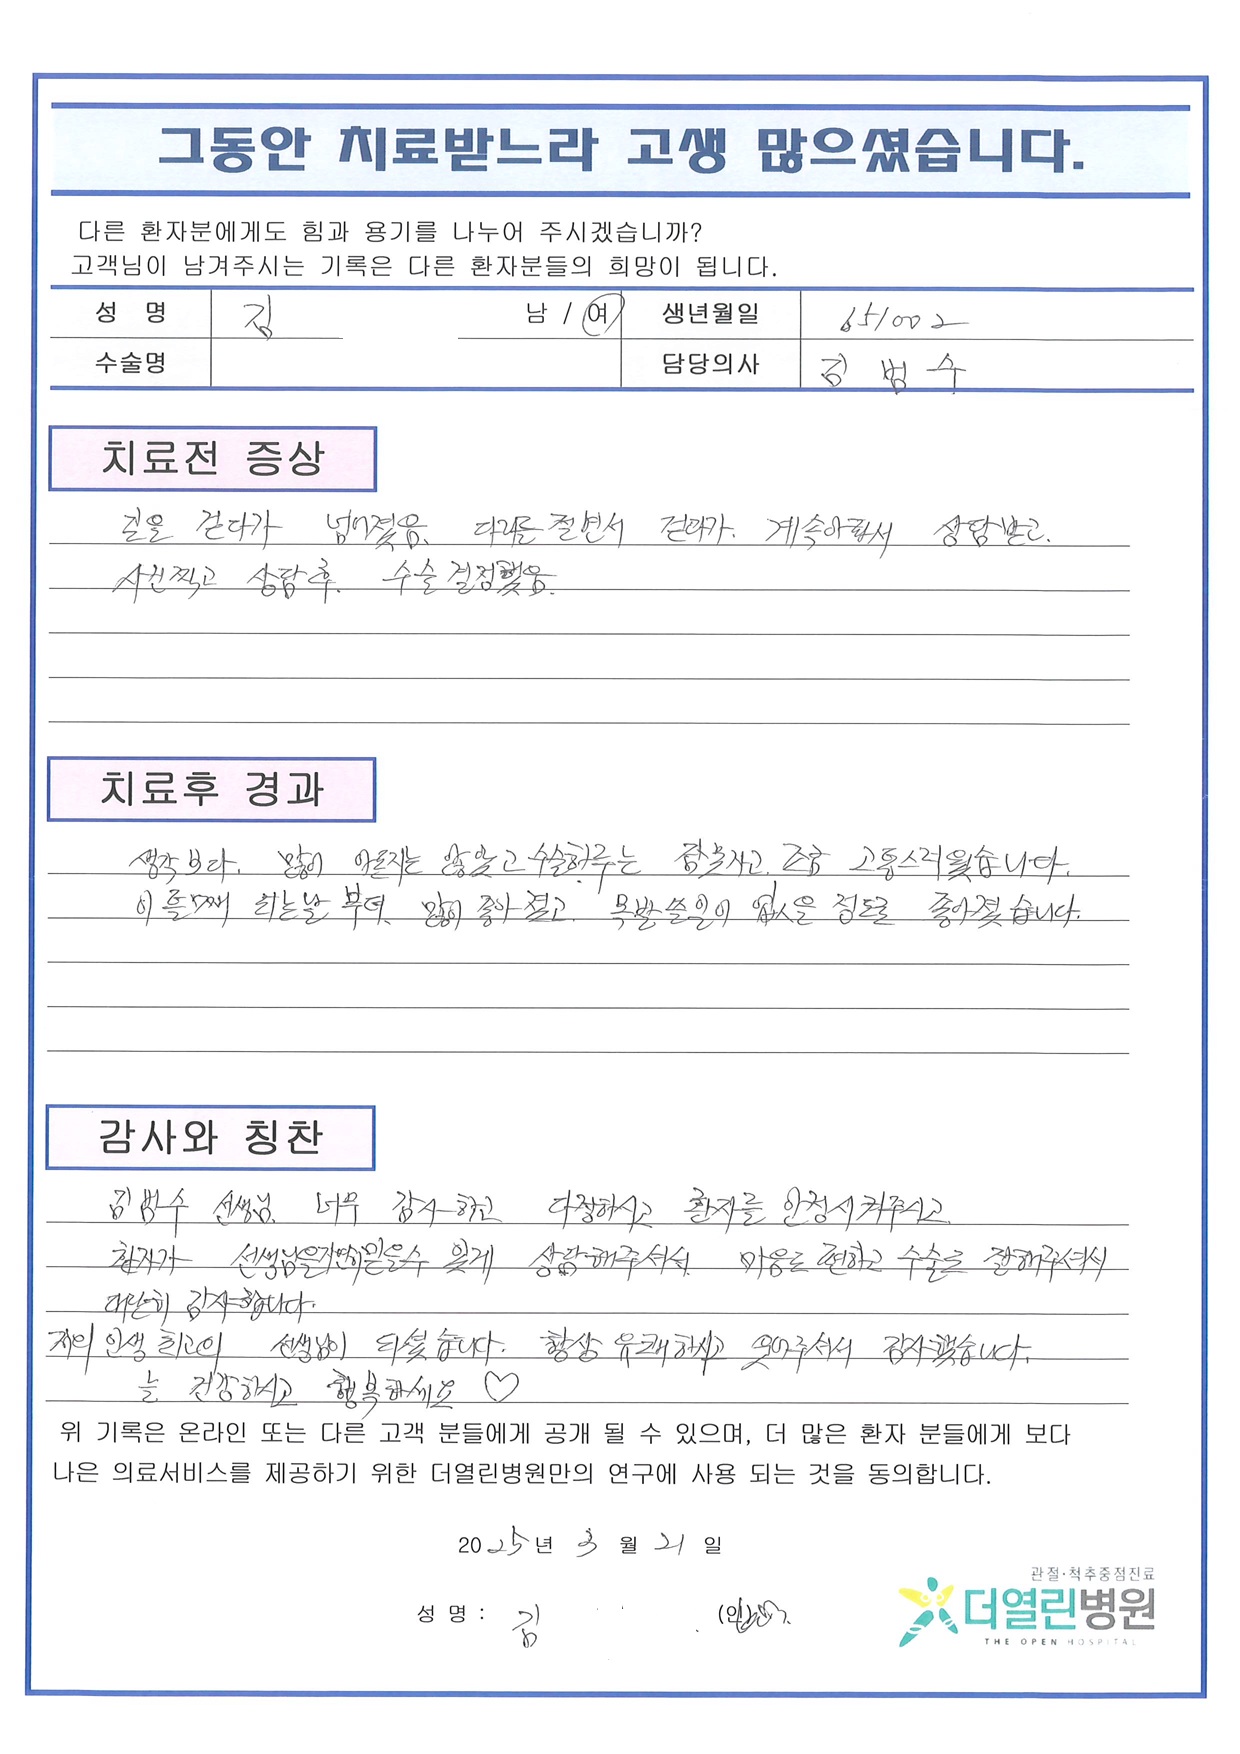 그동안 치료받느라 고생 많으셨습니다.
다른 환자분에게도 힘과 용기를 나누어 주시겠습니까?
고객님이 남겨주시는 기록은 다른 환자분들의 희망이 됩니다.
성 명 김 남 / 여 생년월일 651002
수술명 담당의사 김 범 수
치료전 증상
길을 걷다가 넘어졌음. 다리를 절면서 걷다가. 계속아파서 상담받고.
사진찍고 상담 후. 수술 결정했음.
치료후 경과
생각보다. 많이 아프지는 않았고 수술하루는 잠못자고. 조금 고통스러웠습니다.
이틀째 되는날 부터 많이 좋아졌고. 목발쓸일이 없을 정도로 좋아졌습니다.
감사와 칭찬
김범수 선생님. 너무 감사하고 다정하시고 환자를 안정시켜주시고.
환자가 선생님을 믿을수 있게 상담해주셔서. 마음도 편하고 수술도 잘해주셔서
대단히 감사합니다.
저의 인생 최고의 선생님이 되셨습니다. 항상 유쾌하시고 웃어주셔서 감사했습니다.
늘 건강하시고 행복하세요 ♡
위 기록은 온라인 또는 다른 고객 분들에게 공개 될 수 있으며, 더 많은 환자 분들에게 보다
나은 의료서비스를 제공하기 위한 더열린병원만의 연구에 사용 되는 것을 동의합니다.
2025년 3월 21일
성 명 : 김 (인)
관절·척추중점진료
더열린병원
THE OPEN HOSPITAL